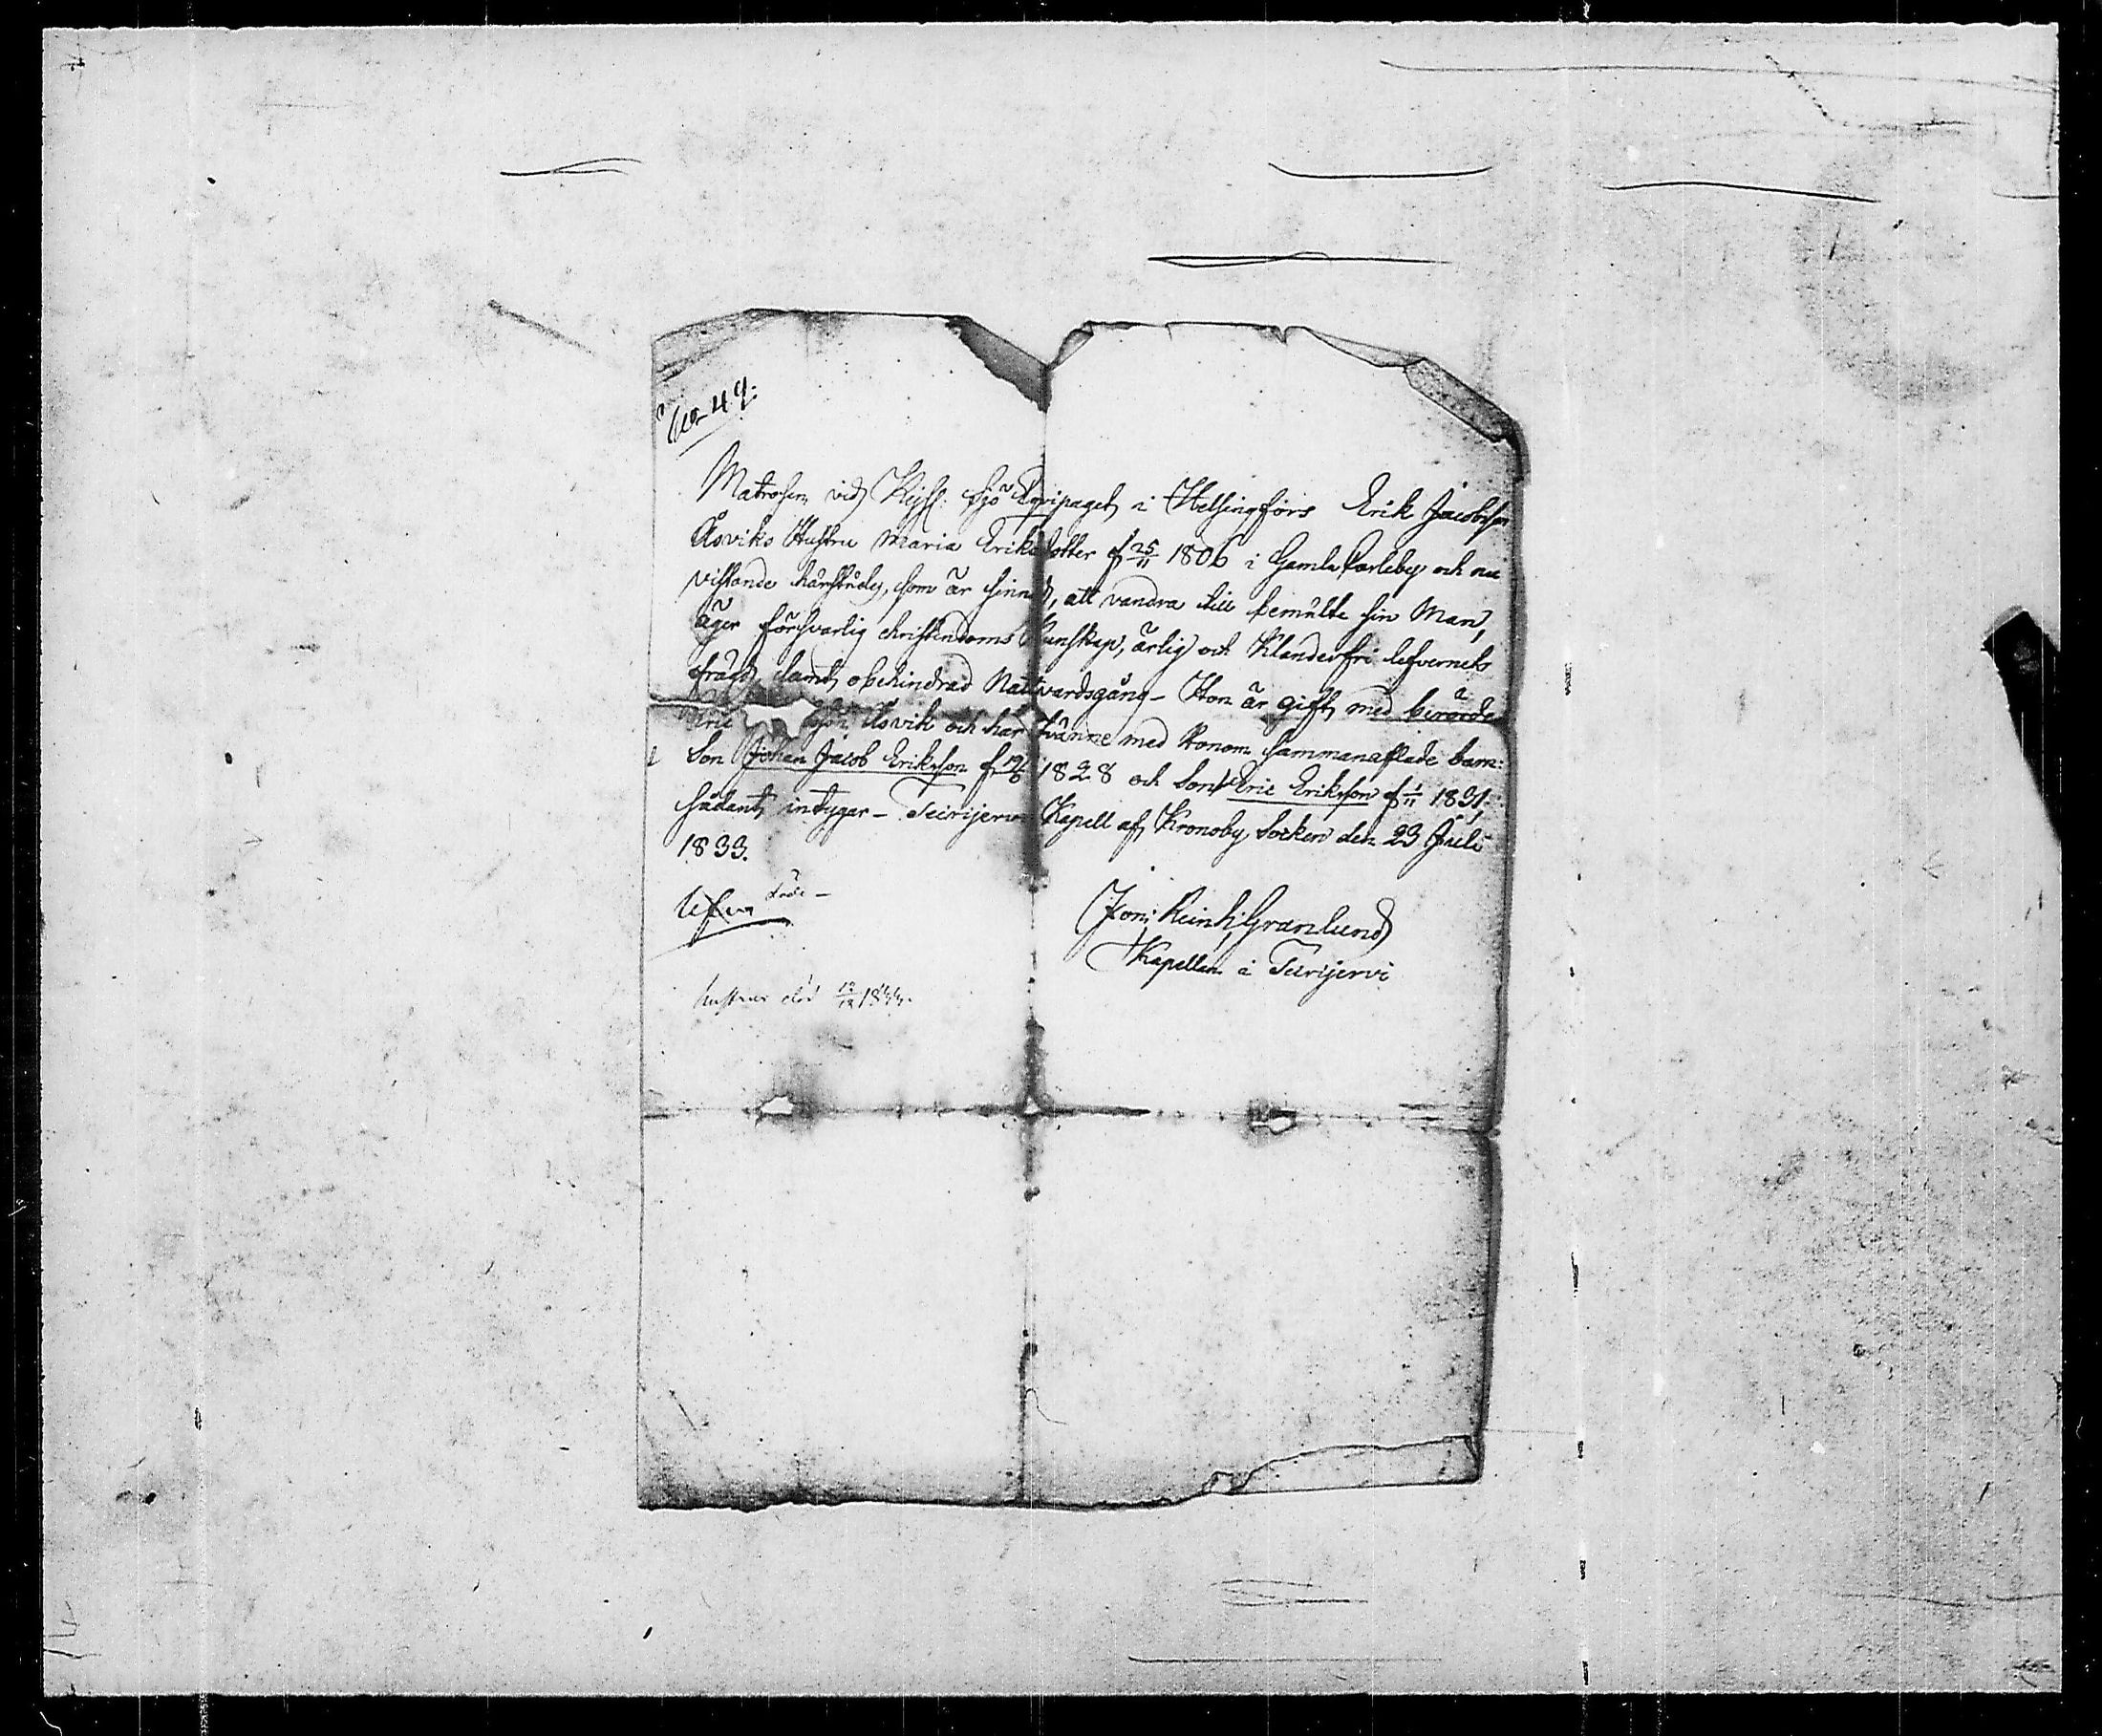 No 49.
Matrosen vid Kejsl. Sjö Eqvipaget i Helsingfors Erik Jacobsson
Åsviks Hustru Maria Eriksdotter f 25/11 1806 i Gamla Carleby och nu
vistande härstädes, som är sinnad, att vandra till bemälte sin Man,
äger försvarlig christendoms Kunskap, ärlig och Klanderfri lefvernets
frägd, samt obehindrad Nattvardsgång - Hon är gift med berörde
Åsvik och har tvänne med honom sammanaflade barn:
Son Johan Jacob Eriksson f 1828 och Son Eric Eriksson f 1/11 1831.
sådant intygar - Terijervi Kapell af Kronoby Socken den 23 Juli
1833.
Reinh. Granlund
Kapellan i Terijervi
Hustrun död 12/12 1844.